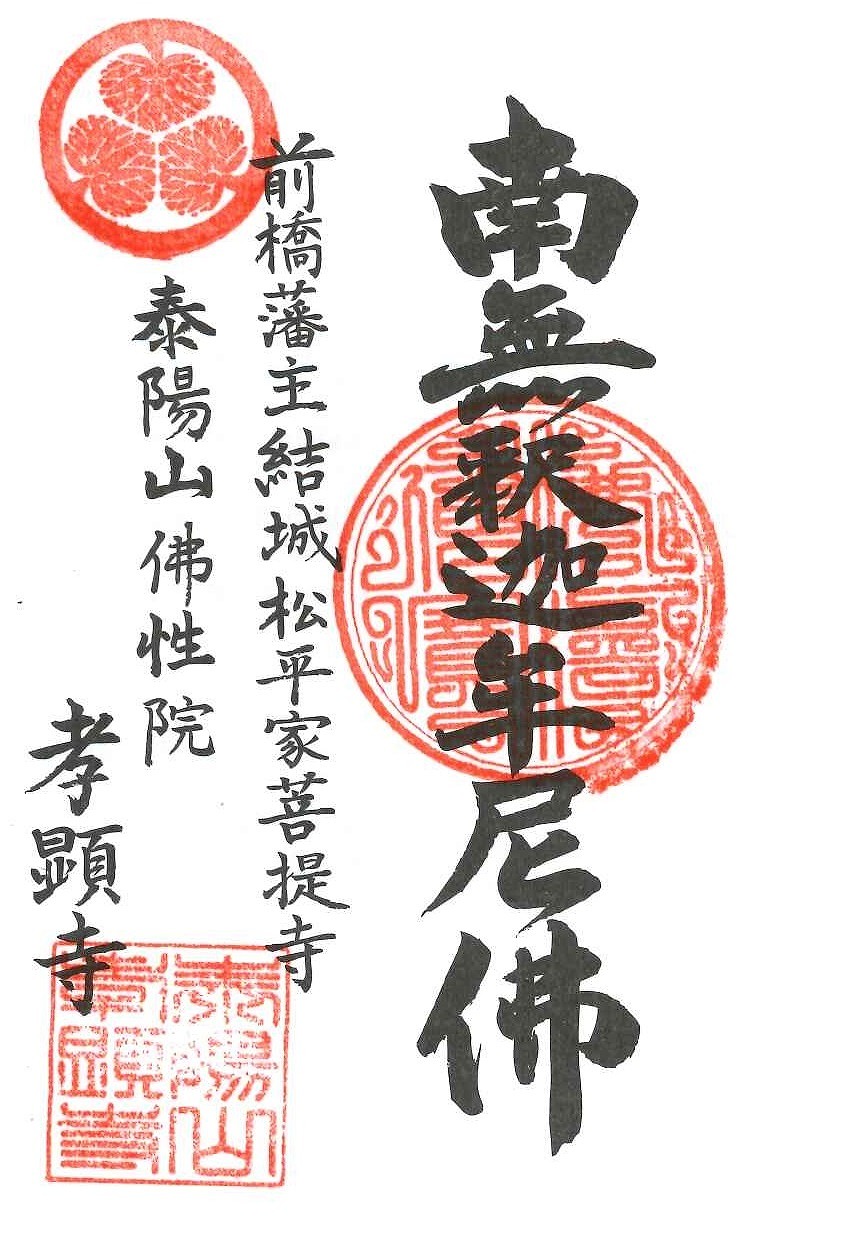 南無釈迦牟尼佛
前橋藩主結城松平家菩提寺
泰陽山佛性院
孝顕寺
泰陽山
孝顕寺